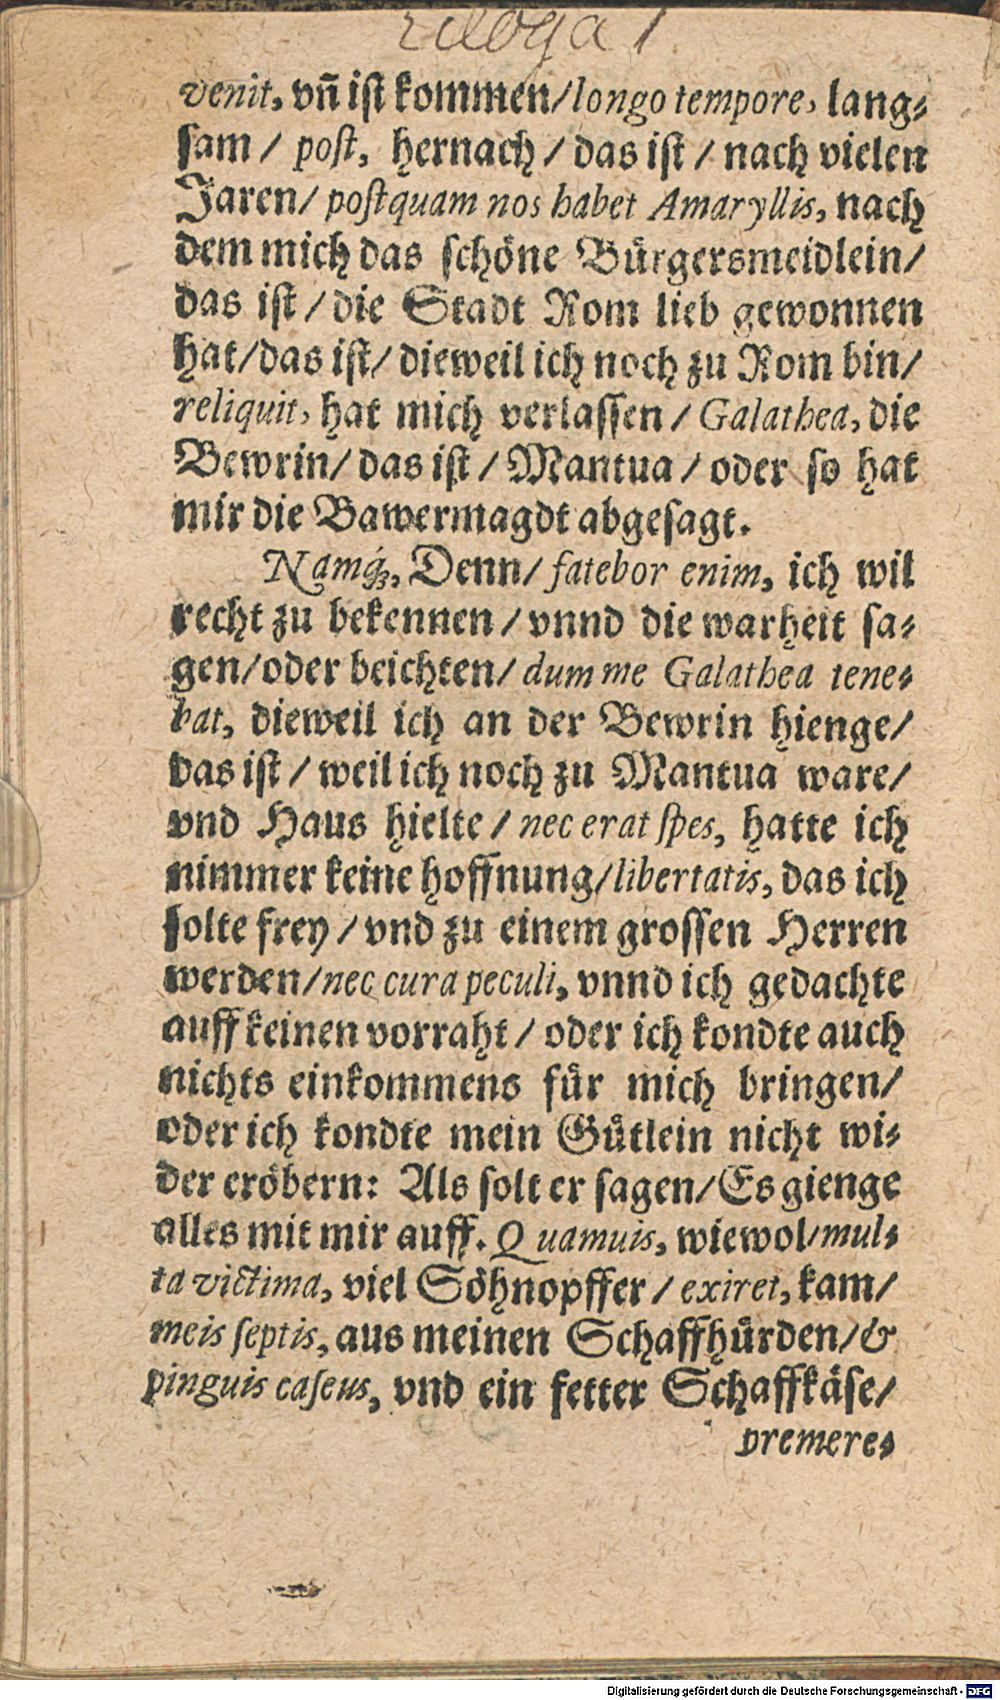 Ecloga 1
venit, vñ iſt kommen/longo tempore, lang⸗
ſam / poſt, hernach / das iſt / nach vielen
Jaren/ poſtquam nos habet Amaryllis, nach
dem mich das ſchöne Bürgersmeidlein/
das iſt / die Stadt Rom lieb gewonnen
hat/das iſt/ dieweil ich noch zu Rom bin/
reliquit, hat mich verlaſſen / Galathea, die
Bewrin/ das iſt / Mantua / oder ſo hat
mir die Bawermagdt abgeſagt.
Namq́;, Denn/ fatebor enim, ich wil
recht zu bekennen / vnnd die warheit ſa⸗
gen/oder beichten/ dum me Galathea tene⸗
bat, dieweil ich an der Bewrin hienge/
das iſt / weil ich noch zu Mantua ware/
vnd Haus hielte / nec erat ſpes, hatte ich
nimmer keine hoffnung/libertatis, das ich
ſolte frey / vnd zu einem groſſen Herren
werden/nec cura peculi, vnnd ich gedachte
auff keinen vorraht / oder ich kondte auch
nichts einkommens für mich bringen/
oder ich kondte mein Gütlein nicht wi⸗
der eröbern: Als ſolt er ſagen/Es gienge
alles mit mir auff. Quamuis, wiewol/mul⸗
ta victima, viel Söhnopffer / exiret, kam/
meis ſeptis, aus meinen Schaffhürden/&
pinguis caſeus, vnd ein fetter Schaffkäſe/
premere⸗
Digitalisierung gefördert durch die Deutsche Forschungsgemeinschaft - DFG